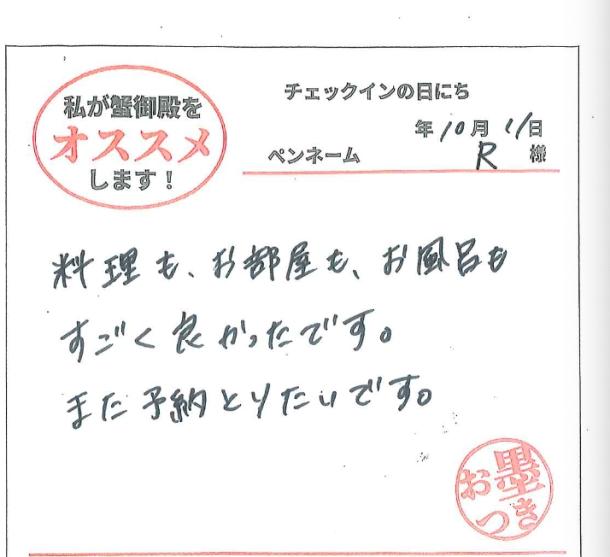 私が蟹御殿を
オススメ
します!
チェックインの日にち
年10月11日
ペンネーム R 様
料理も、お部屋も、お風呂も
すごく良かったです。
また予約とりたいです。
お墨
つき